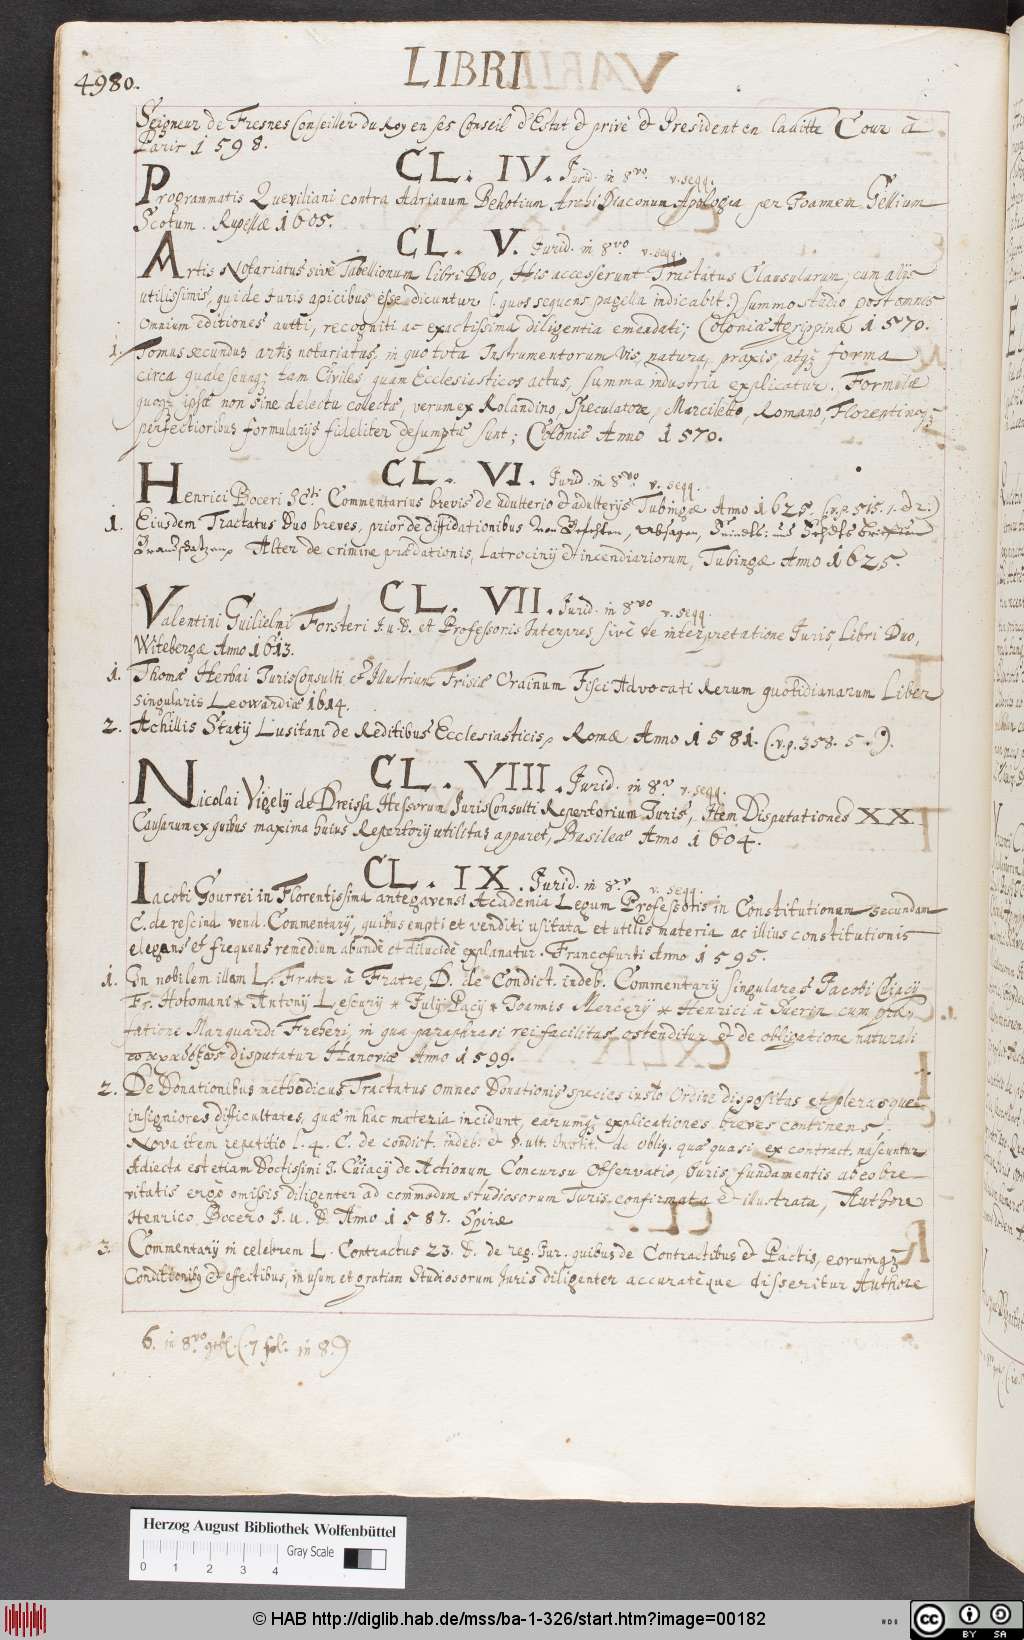 4980.
LIBRI
Seigneur de Fresnes Conseiller du Roy en ses Conseil d'Estat & privé & President en laditte Cour à
Paris 1598.
CL. IV. Jurid. in 8vo. v. seqq.
Programmatis Queviliani contra Adrianum Behotium Archi Diaconum Apologia per Joannem Gellium
Scotum. Rupellæ 1605.
CL. V. Jurid. in 8vo v. seqq.
Artis Notariatus sivè Tabellionum libri Duo, His accesserunt Tractatus Clausularum, cum alijs
utilissimis, qui de Juris apicibus esse dicuntur (: quos sequens pagella indicabit :) summo studio post omnes
omnium editiones aucti, recogniti ac exactissima diligentia emendati; Coloniæ Agrippinæ 1570.
1. Tomus secundus artis notariatus, in quo tota Instrumentorum vis, natura, praxis, atqz forma
circa qualescunqz tam Civiles quam Ecclesiasticos actus, summa industria explicatur. Formulæ
quoqz ipsæ non sine delectu colectæ, verum ex Rolandino, Speculatore, Marciletto, Romano, Florentinoqz
perfectioribus formularijs fideliter desumptæ sunt; Coloniæ Anno 1570.
CL. VI. Jurid. in 8vo v. seqq.
Henrici Boceri JCti Commentarius brevis de adulterio & adulterijs Tubingæ Anno 1625. (.v.p. 515. 1. & 2.)
1. Eiusdem Tractatus Duo breves, prior de diffidationibus von Befehden, Absagen,
Alter de crimine prædationis, Latrocinij et incendiariorum, Tubingæ Anno 1625.
CL. VII. Jurid. in 8vo v. seqq.
Valentini Guilielmi Forsteri J.u.D. et Professoris Interpres, sivè de interpretatione Juris, Libri Duo,
Witebergæ Anno 1613.
1. Thomæ Herbai JurisConsulti & Illustrium Frisiæ Ordinum Fisci Advocati Rerum quotidianarum Liber
singularis Leowardiæ 1614.
2. Achillis Statij Lusitani de Reditibus Ecclesiasticis, Romæ Anno 1581. (.v.p. 358. 5.)
CL. VIII. Jurid. in 8vo v. seqq.
Nicolai Vigelij de Dreissa Hessorum JurisConsulti Repertorium Juris, Item Disputationes XX
Causarum ex quibus maxima huius Repertorij utilitas apparet, Basileæ Anno 1604.
CL. IX. Jurid. in 8vo v. seqq.
Iacobi Gourrei in Florentissima antegavensi Academia Legum Professoris in Constitutionum secundam
C. de rescind. vend. Commentarij, quibus empti et venditi usitata et utilis materia ac illius constitutionis
elegans & frequens remedium abundè et dilucidè explanatur. Francofurti Anno 1595.
1. In nobilem illam L. Frater à Fratre, D. de Condict. indeb. Commentarij singulares Jacobi Cuiacij
Fr. Hotomani * Antonij Lescurij * Julij Pacij * Joannis Mercerij * Henrici à Suerin cum
Marquardi Freheri, in qua paraphrasi rei facilitas ostenditur & de obligatione naturali
disputatur Hanoviæ Anno 1599.
2. De Donationibus methodicus Tractatus omnes Donationis species iusto Ordine dispositas et plerasque
insigniores difficultates, quæ in hac materia incidunt, earumqz explicationes breves continens,
Nova item repetitio l. 4. C. de condict. indeb. & §. ult. Instit. de oblig. quæ quasi ex contract. nascuntur
Adiecta est etiam Doctissimi J. Cuiacij de Actionum Concursu Observatio Juris fundamentis ab eo bre-
vitatis ergò omissis diligenter ad commodum studiosorum Juris confirmata & illustrata, Authore
Henrico Bocero J.u.D. Anno 1587. Spiræ
3. Commentarij in celebrem L. Contractus 23. D. de reg. Jur. quibus de Contractibus & Pactis, eorumqz
Conditionibz & effectibus, in usum et gratiam Studiosorum Juris diligenter accuratèque disseritur Authore
6. in 8vo (.7 in 8.)
Herzog August Bibliothek Wolfenbüttel
Gray Scale
0 1 2 3 4
© HAB http://diglib.hab.de/mss/ba-1-326/start.htm?image=00182
cc BY SA